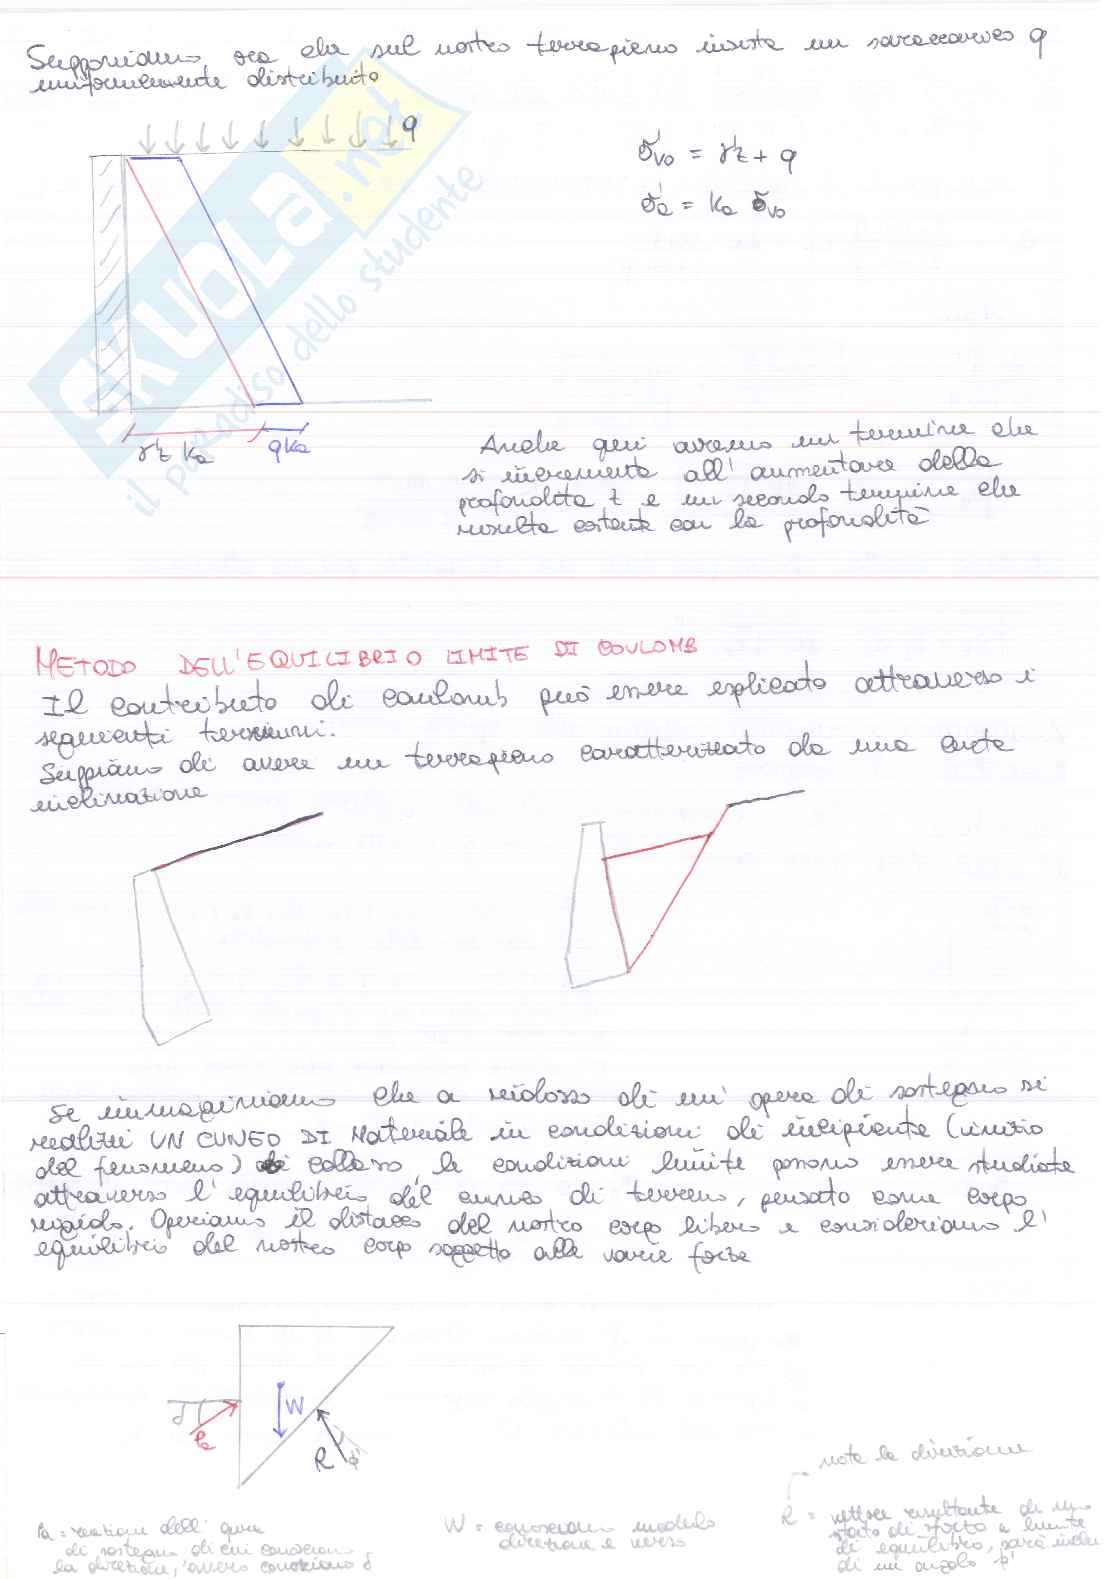 Supponiamo ora che sul nostro terrapieno insista un sovraccarico q
uniformemente distribuito
q
σ'vo = γ'z + q
σ'a = ka σ'vo
γ'z ka
qka
Anche qui avremo un termine che
si incrementa all'aumentare della
profondità z e un secondo termine che
risulta costante con la profondità
METODO DELL'EQUILIBRIO LIMITE DI COULOMB
Il contributo di coulomb può essere esplicato attraverso i
seguenti termini.
Suppiano di avere un terrapieno caratterizzato da una certa
inclinazione
Se immaginiamo che a ridosso di un'opera di sostegno si
realizzi UN CUNEO DI Materiale in condizioni di incipiente (inizio
del fenomeno) di collasso, le condizioni limite possono essere studiate
attraverso l'equilibrio del cuneo di terreno, pensato come corpo
rigido. Operiamo il distacco del nostro corpo libero e consideriamo l'
equilibrio del nostro corpo soggetto alle varie forze
δ
Pa
W
R
φ'
note la direzione
Pa = reazione dell'opera
di sostegno di cui conosciamo
la direzione, avero conosciamo δ
W = conosciamo modulo
direzione e verso
R = vettore risultante di uno
stato di sforzo a limite
di equilibrio, sarà
di un angolo φ'
SKUOLA.net
il paradiso dello studente